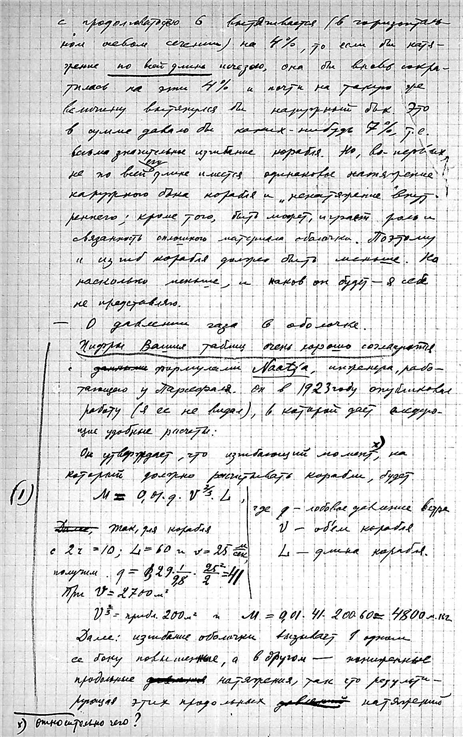 с продолговатостью 6 вытягивается (в горизонталь-
ном осевом сечении) на 4%, то если бы натя-
жение по всей длине исчезло, она бы вновь сокра-
тилась на эти 4% и почти на такую же
величину вытянулся бы наружный бок. Это
в сумме давало бы каких-нибудь 7%, т.е.
весьма значительное изгибание корабля. Но, во-первых,
не по всей длине имеется одинаковое натяжение
наружного бока корабля и „ненатяжение" внут-
реннего; кроме того, быть может, играет роль и
связанность сплошного материала оболочки. Поэтому
и изгиб корабля должен быть меньше. На
насколько меньше, и каков он будет – я себе
не представляю.
— О давлении газа в оболочке.
Цифры Ваших таблиц очень хорошо согласуются
с формулами Naatz'a, инженера, рабо-
тающего у Парсеваля. Он в 1923 году опубликовал
работу (я ее не видал), в которой дает следую-
щие удобные расчеты:
Он утверждает, что изгибающий момент x), на
который должно рассчитывать корабли, будет
(1) M = 0,01. q. V^2/3. L,
где q – лобовое давление ветра
V – объем корабля
L – длина корабля.
Так, для корабля
с 2r = 10; L = 60 и v = 25 м/сек,
получим q = 1,29. 1/9,8 . 25²/2 = 41
При V = 2700 м³
V^2/3 = прибл. 200 м² и M = 0,01. 41. 200. 60 = 4800 м. кг.
Далее: изгибание оболочки вызывает в одном
ее боку повышенные, а в другом — пониженные
продольные натяжения, так что результи-
рующая этих продольных натяжений
x) относительно чего?